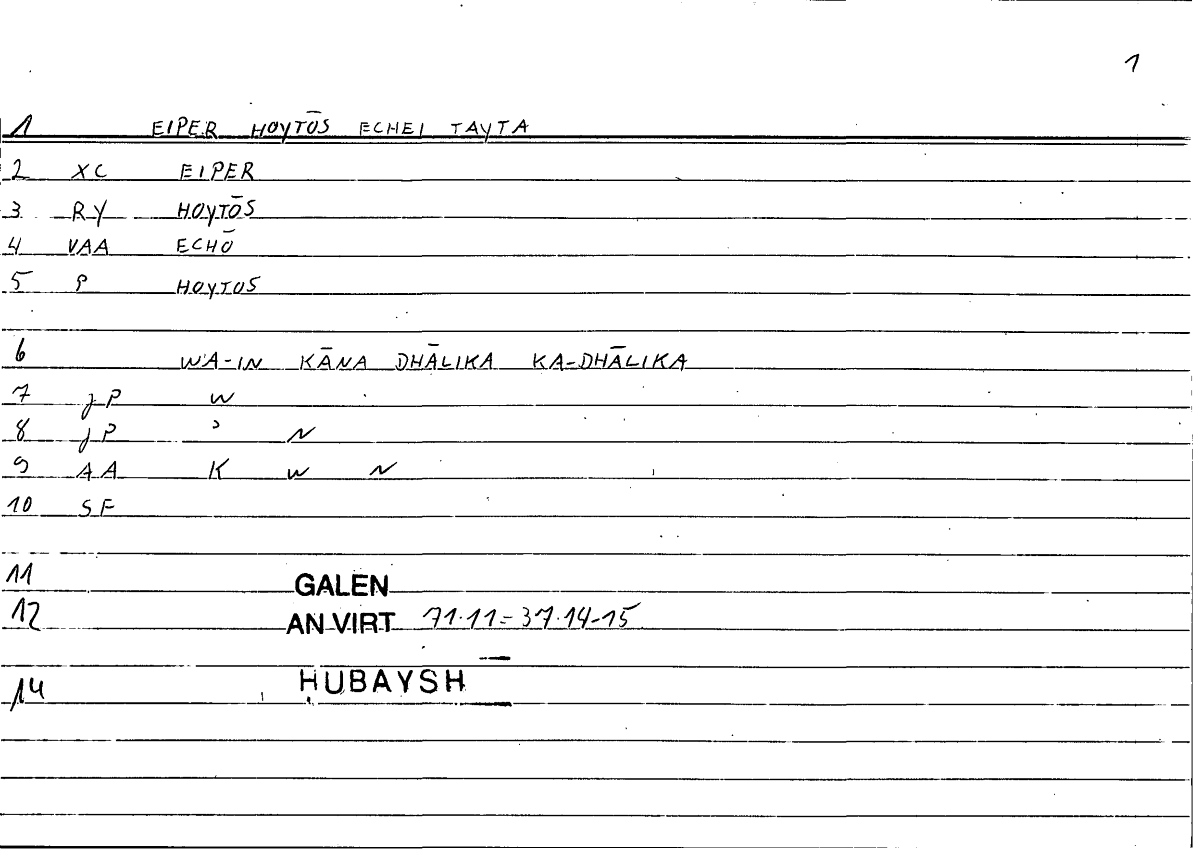 1
1 EIPER HOYTŌS ECHEI TAYTA
2 XC EIPER
3 RY HOYTŌS
4 VAA ECHŌ
5 P HOYTOS
6 WA-IN KĀNA DHĀLIKA KA-DHĀLIKA
7 JP W
8 JP ʾ N
9 AA K W N
10 SF
11 GALEN
12 AN VIRT 71.11=37.14-15
14 ḤUBAYSH